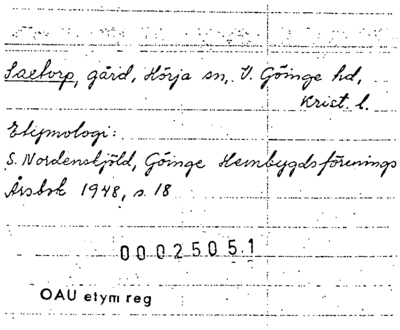 Saxtorp, gård, Hörja sn, V. Göinge hd,
Krist. l.
Etymologi:
S. Nordenskjöld, Göinge Hembygdsförenings
Årsbok 1948, s. 18
00025051
OAU etym reg